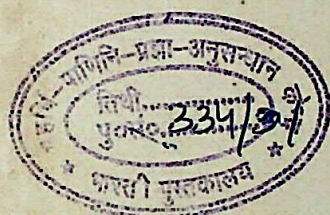 महर्षि-पाणिनि-प्रज्ञा-अनुसन्धान
तिथी..........
पु०सं० 334/
* भारती पुस्तकालय *